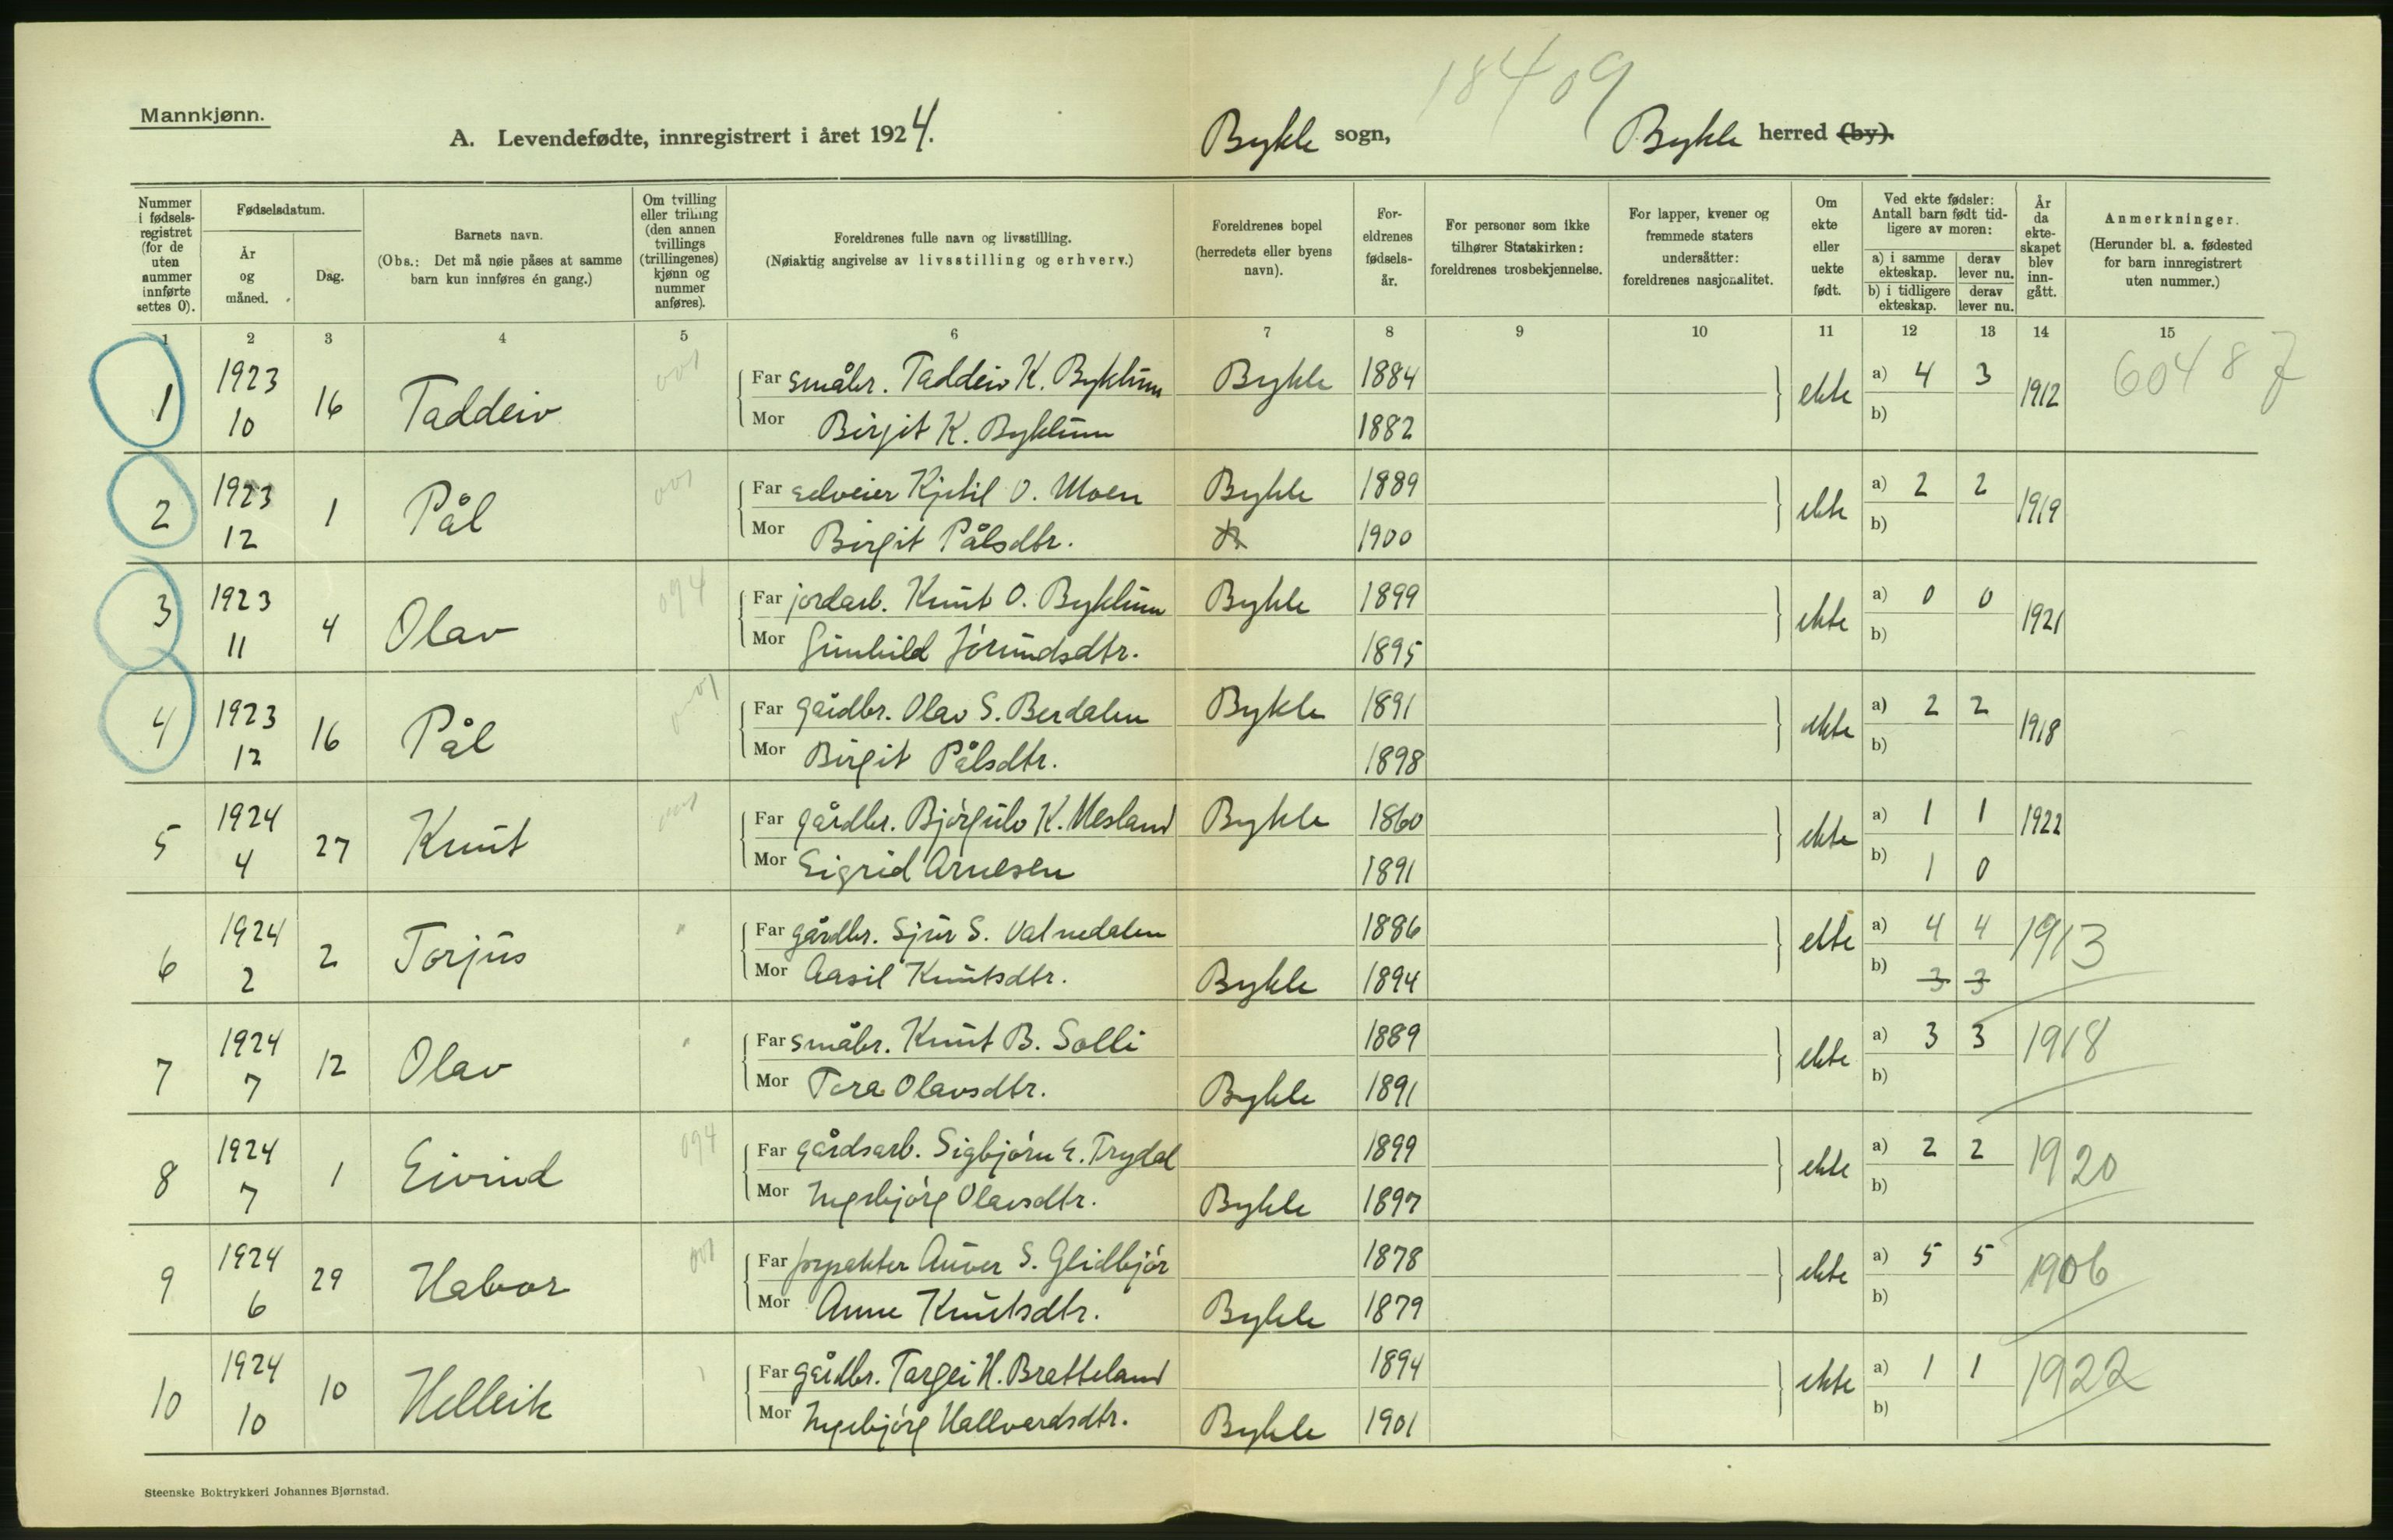 18409
Mannkjønn.
A. Levendefødte, innregistrert i året 1924. Bykle sogn, Bykle herred (by).
Nummer i fødselsregistret (for de uten nummer innførte settes 0).
Fødselsdatum.
År og måned.
Dag.
Barnets navn.
(Obs.: Det må nøie påses at samme barn kun innføres én gang.)
Om tvilling eller trilling (den annen tvillings (trillingenes) kjønn og nummer anføres).
Foreldrenes fulle navn og livsstilling.
(Nøiaktig angivelse av livsstilling og erhverv.)
Foreldrenes bopel (herredets eller byens navn).
Foreldrenes fødselsår.
For personer som ikke tilhører Statskirken: foreldrenes trosbekjennelse.
For lapper, kvener og fremmede staters undersåtter: foreldrenes nasjonalitet.
Om ekte eller uekte født.
Ved ekte fødsler: Antall barn født tidligere av moren:
a) i samme ekteskap. derav lever nu.
b) i tidligere ekteskap. derav lever nu.
År da ekteskapet blev inngått.
Anmerkninger.
(Herunder bl. a. fødested for barn innregistrert uten nummer.)
1 2 3 4 5 6 7 8 9 10 11 12 13 14 15
1 1923 10 16 Taddeiv 001 Far småbr. Taddeiv K. Byklum Bykle 1884 ekte a) 4 3 1912 60487
Mor Birgit K. Byklum 1882 b)
2 1923 12 1 Pål 001 Far selveier Kjetil O. Moen Bykle 1889 ekte a) 2 2 1919
Mor Birgit Pålsdtr. 1900 b)
3 1923 11 4 Olav 094 Far jordarb. Knut O. Byklum Bykle 1899 ekte a) 0 0 1921
Mor Gunhild Jórundsdtr. 1895 b)
4 1923 12 16 Pål 001 Far gårdbr. Olav S. Berdalen Bykle 1891 ekte a) 2 2 1918
Mor Birgit Pålsdtr. 1898 b)
5 1924 4 27 Knut 001 Far gårdbr. Bjórgulv K. Mesland Bykle 1860 ekte a) 1 1 1922
Mor Sigrid Arnesen 1891 b) 1 0
6 1924 2 2 Torjus " Far gårdbr. Sjur S. Vatnedalen 1886 ekte a) 4 4 1913
Mor Aasil Knutsdtr. Bykle 1894 b) 3 3
7 1924 7 12 Olav " Far småbr. Knut B. Solli 1889 ekte a) 3 3 1918
Mor Tora Olavsdtr. Bykle 1891 b)
8 1924 7 1 Eivind 094 Far gårdsarb. Sigbjórn E. Trydal 1899 ekte a) 2 2 1920
Mor Ingebjórg Olavsdtr. Bykle 1897 b)
9 1924 6 29 Habor 001 Far forpakter Auver S. Glidbjór 1878 ekte a) 5 5 1906
Mor Anne Knutsdtr. Bykle 1879 b)
10 1924 10 10 Helleik Far gårdbr. Targei H. Bratteland 1894 ekte a) 1 1 1922
Mor Ingebjórg Hallvardsdtr. Bykle 1901 b)
Steenske Boktrykkeri Johannes Bjørnstad.